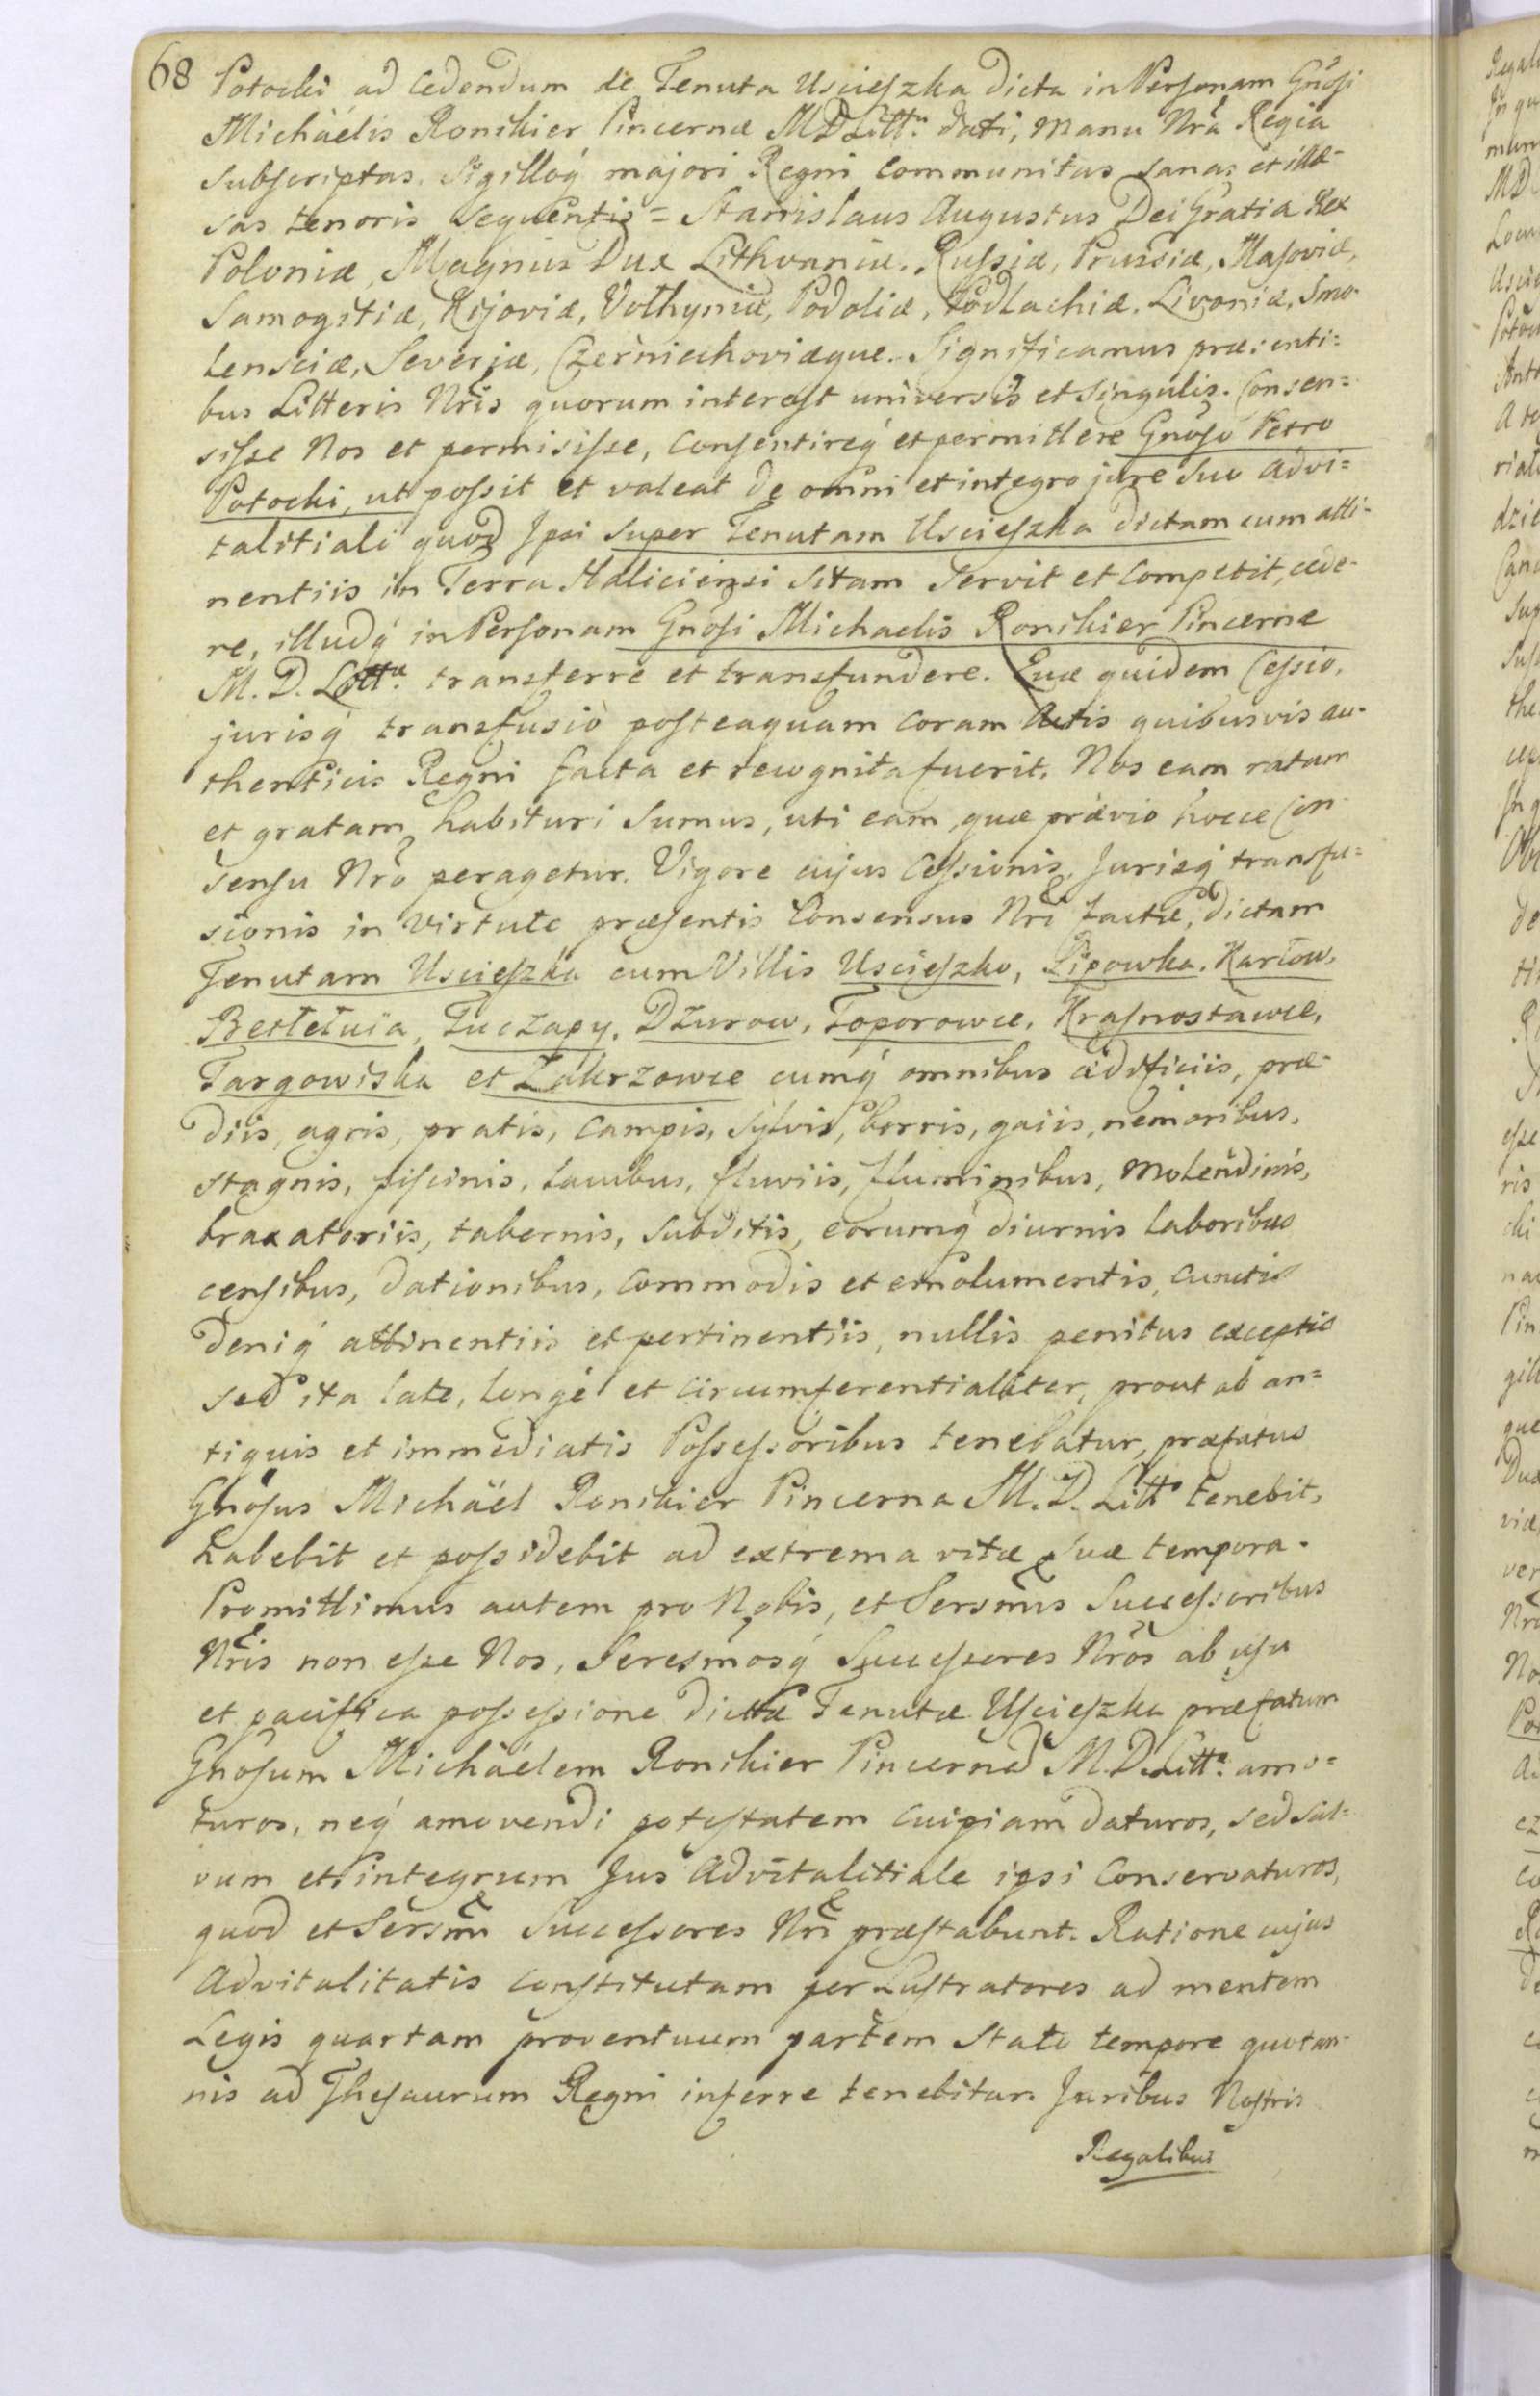 68 Potocki ad cedendum de Tenuta Uscieſzka dicta in Perſonam Gnősi
Michäélis Ronikier Pincernæ MD Littæ dati, manu Nrã Regia
Subſcriptas, Sigilloq́ majori Regni communitas Sanas et illæ-
sas tenoris sequentis = Stanislaus Augustus Dei Gratia Rex
Poloniæ, Magnus Dux Lithvaniæ, Ruſsiæ, Prussiæ, Maſoviæ,
Samogitiæ, Kijoviæ, Volhyniæ, Podoliæ, Podlachiæ, Livoniæ, Smo-
lensciæ, Severiæ, Czerniechoviæque. Significamus præsenti=
bus Litteris Nrĩs quorum intereſt universis et Singulis. Consen=
siſse Nos et permisiſse, conſentireq́ et permittere Gnőſo Petro
Potocki, ut poſsit et valeat de omni et integro jure Suo advi=
talitiali quod Ipsi Super Tenutam Uscieſzka dictam cum atti-
nentiis in Terra Haliciensi Sitam Servit et competit, cede-
re, illudq́ in Perſonam Gnőſi Michaelis Ronikier Pincernæ
M. D. Littæ transferre et transfundere. Quæ quidem Ceſsio,
jurisq́ transfusio poſteaquam coram Actis quibusvis au-
thenticis Regni facta et recognita fuerit, Nos eam ratam
et gratam habituri Sumus, uti eam, quæ prævio hocce Con-
sensu Nrõ peragetur. Vigore cujus Ceſsionis, Jurisq́ transfu=
sionis in virtute præſentis Consensus Nrĩ factæ, dictam
Tenutam Uscieſzka cum Villis Uscieſzko, Lipowka, Karłow,
Bełełuia, Tuczapy, Dżurow, Toporowce, Kraſnostawce,
Targowiska et Zakrzowce cumq́ omnibus ædificiis, præ-
diis, agris, pratis, campis, Sylvis, borris, gaiis, nemoribus,
stagnis, piſcinis, lacubus, fluviis, fluminibus, molendinis,
braxatoriis, tabernis, Subditis, eorumq́ diurnis laboribus
cenſibus, dationibus, commodis et emolumentis, cunctis
deniq́ attinentiis et pertinentiis, nullis penitus exceptis
sed ita late, longé et circumferentialiter, prout ab an=
tiquis et immediatis Poſseſsoribus tenebatur, præfatus
Gnőſus Michäël Ronikier Pincerna M. D. Littæ tenebit,
habebit et poſsidebit ad extrema vitæ Suæ tempora.
Promittimus autem pro Nobis, et Sersmĩs Succeſsoribus
Nrĩs non eſse Nos, Seresmõsq́ Succeſsores Nrõs ab uſu
et pacifica poſseſsione dictæ Tenutæ Uſcieſzka præfatum
Gnőſum Michäélem Ronikier Pincernã M. D. Littæ amo=
turos, neq́ amovendi poteſtatem cuipiam daturos, sed Sal=
vum et integrum Jus Advitalitiale ipsi conservaturos,
quod et Sersmĩ Succeſsores Nrĩ præſtabunt. Ratione cujus
Advitalitatis conſtitutam per Luſtratores ad mentem
Legis quartam proventuum partem Stato tempore quotan-
nis ad Theſaurum Regni inferre tenebitur. Juribus Noſtris
Regalibus